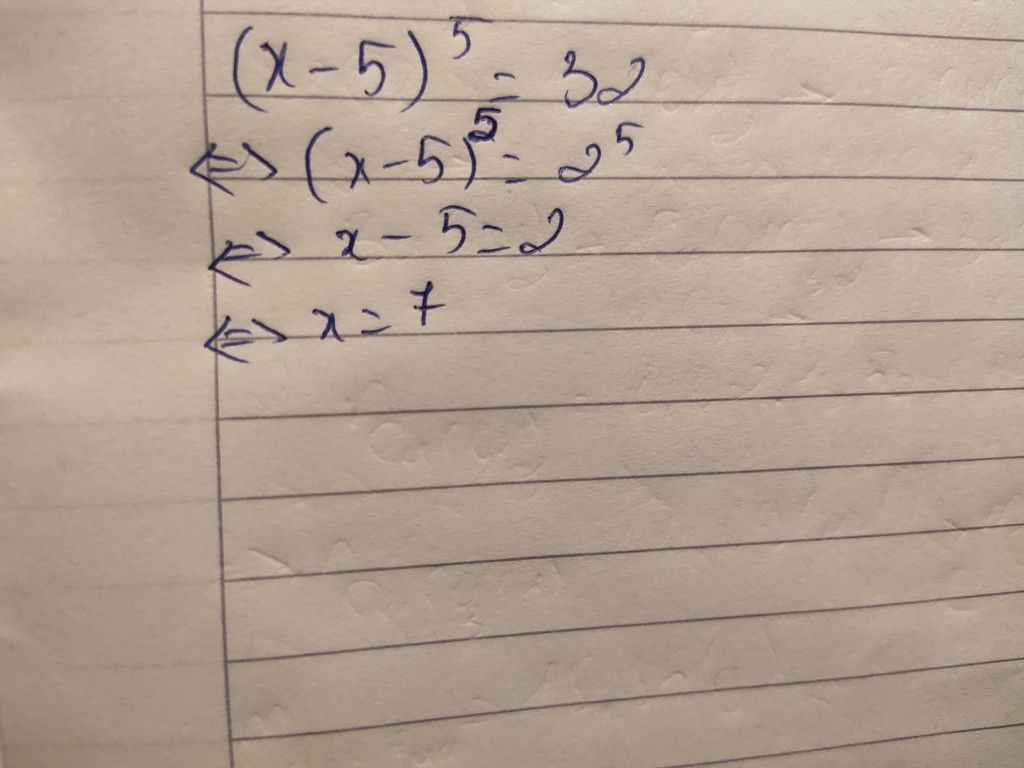 (x-5)⁵ = 32
⇔ (x-5)⁵ = 2⁵
⇔ x - 5 = 2
⇔ x = 7